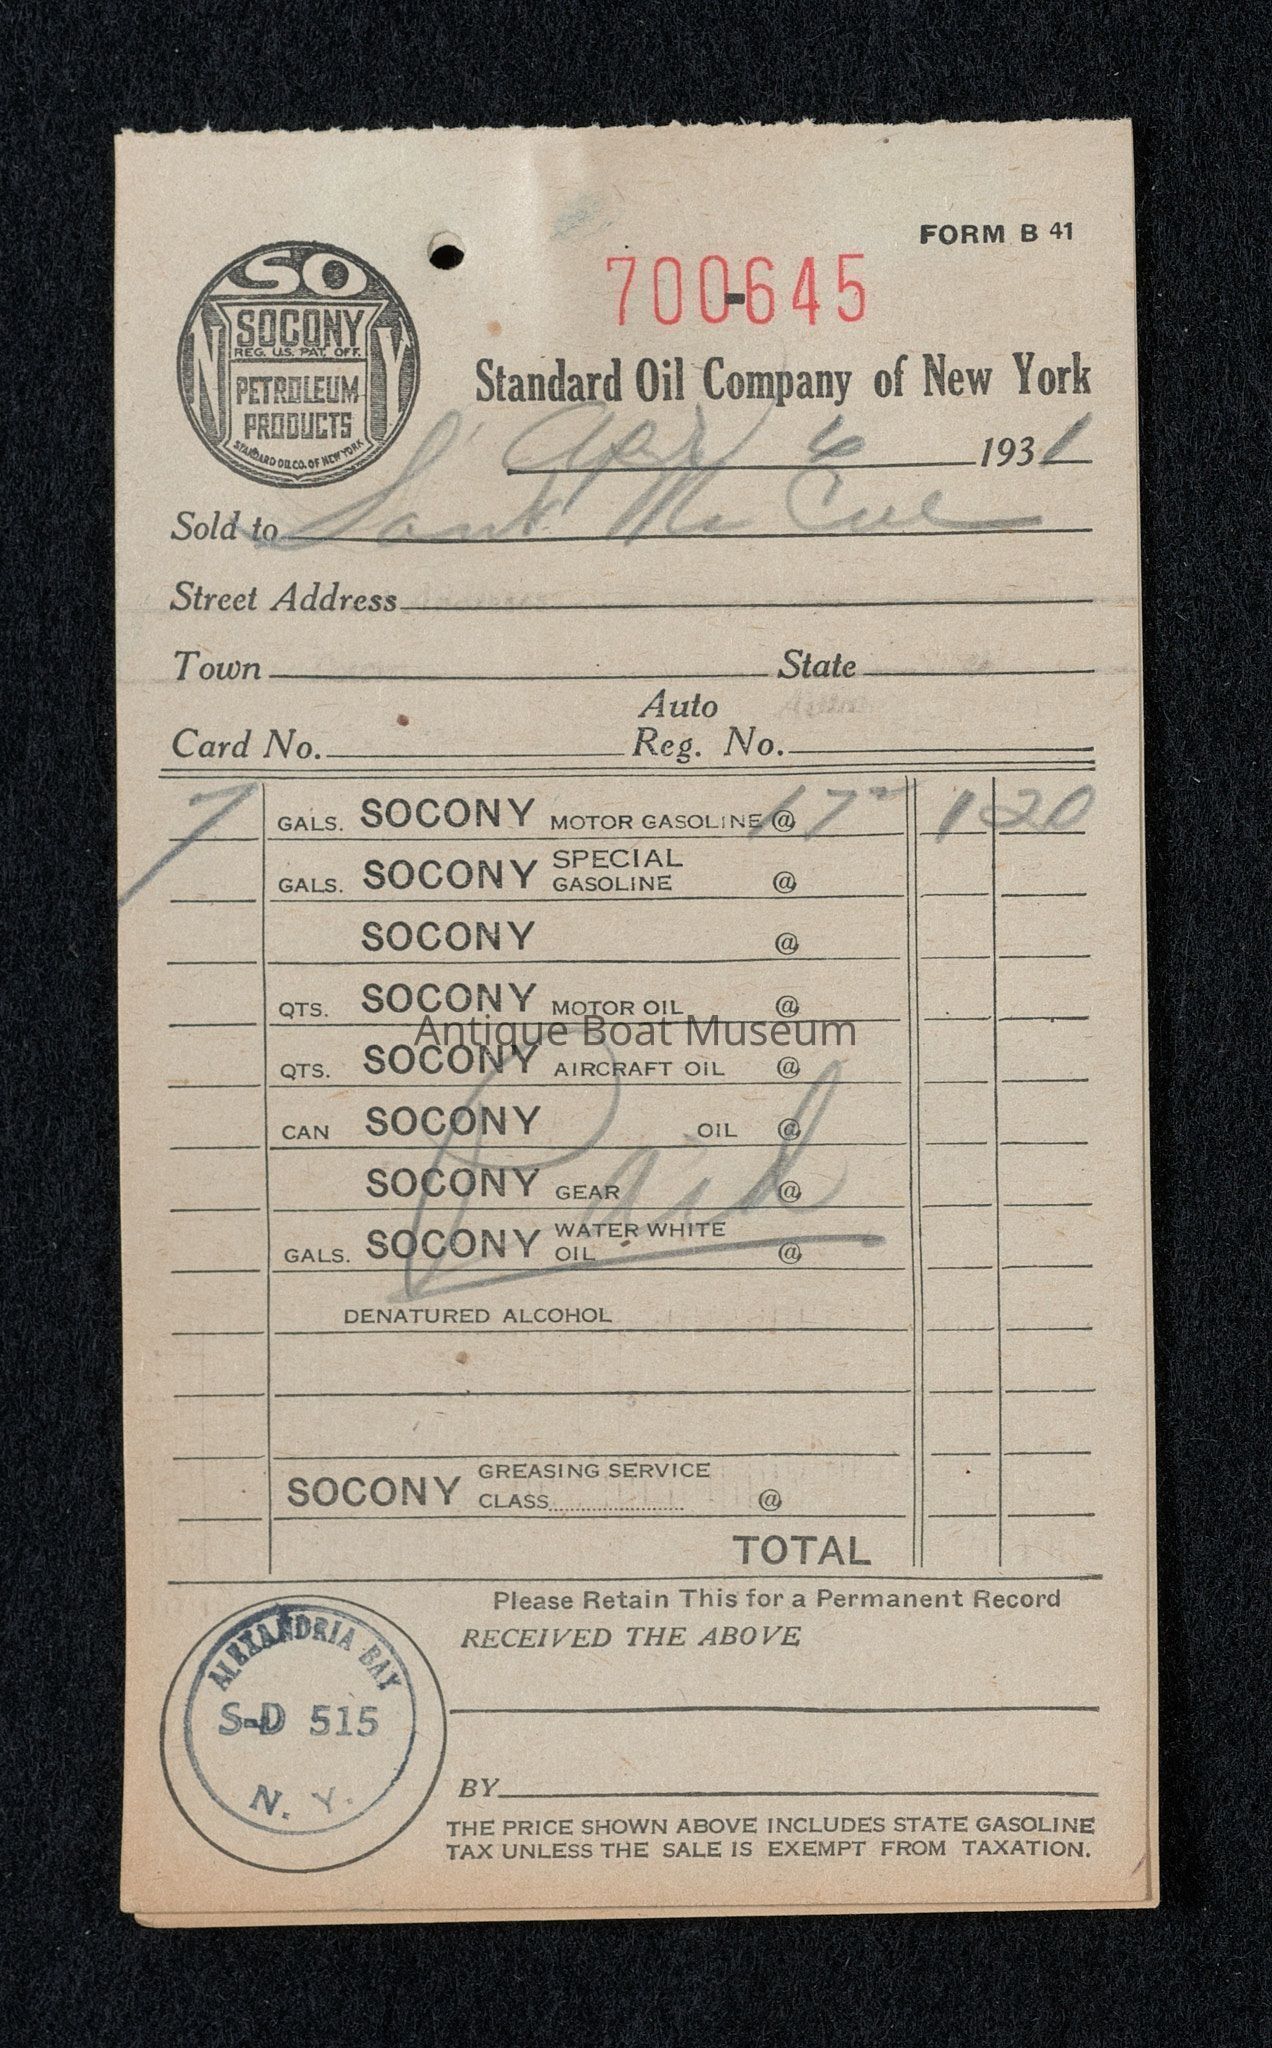 FORM B 41
SO
NY
SOCONY
REG. U.S. PAT. OFF.
PETROLEUM
PRODUCTS
STANDARD OIL CO. OF NEW YORK
700-645
Standard Oil Company of New York
Apr 6 1931
Sold to Mc Cue
Street Address
Town State
Card No. Auto Reg. No.
7 GALS. SOCONY MOTOR GASOLINE @ 17 1 20
GALS. SOCONY SPECIAL GASOLINE @
SOCONY @
QTS. SOCONY MOTOR OIL @
Antique Boat Museum
QTS. SOCONY AIRCRAFT OIL @
CAN SOCONY OIL @
Paid
SOCONY GEAR @
GALS. SOCONY WATER WHITE OIL @
DENATURED ALCOHOL
SOCONY GREASING SERVICE
CLASS @
TOTAL
Please Retain This for a Permanent Record
RECEIVED THE ABOVE
ALEXANDRIA BAY
S-D 515
N. Y.
BY
THE PRICE SHOWN ABOVE INCLUDES STATE GASOLINE
TAX UNLESS THE SALE IS EXEMPT FROM TAXATION.